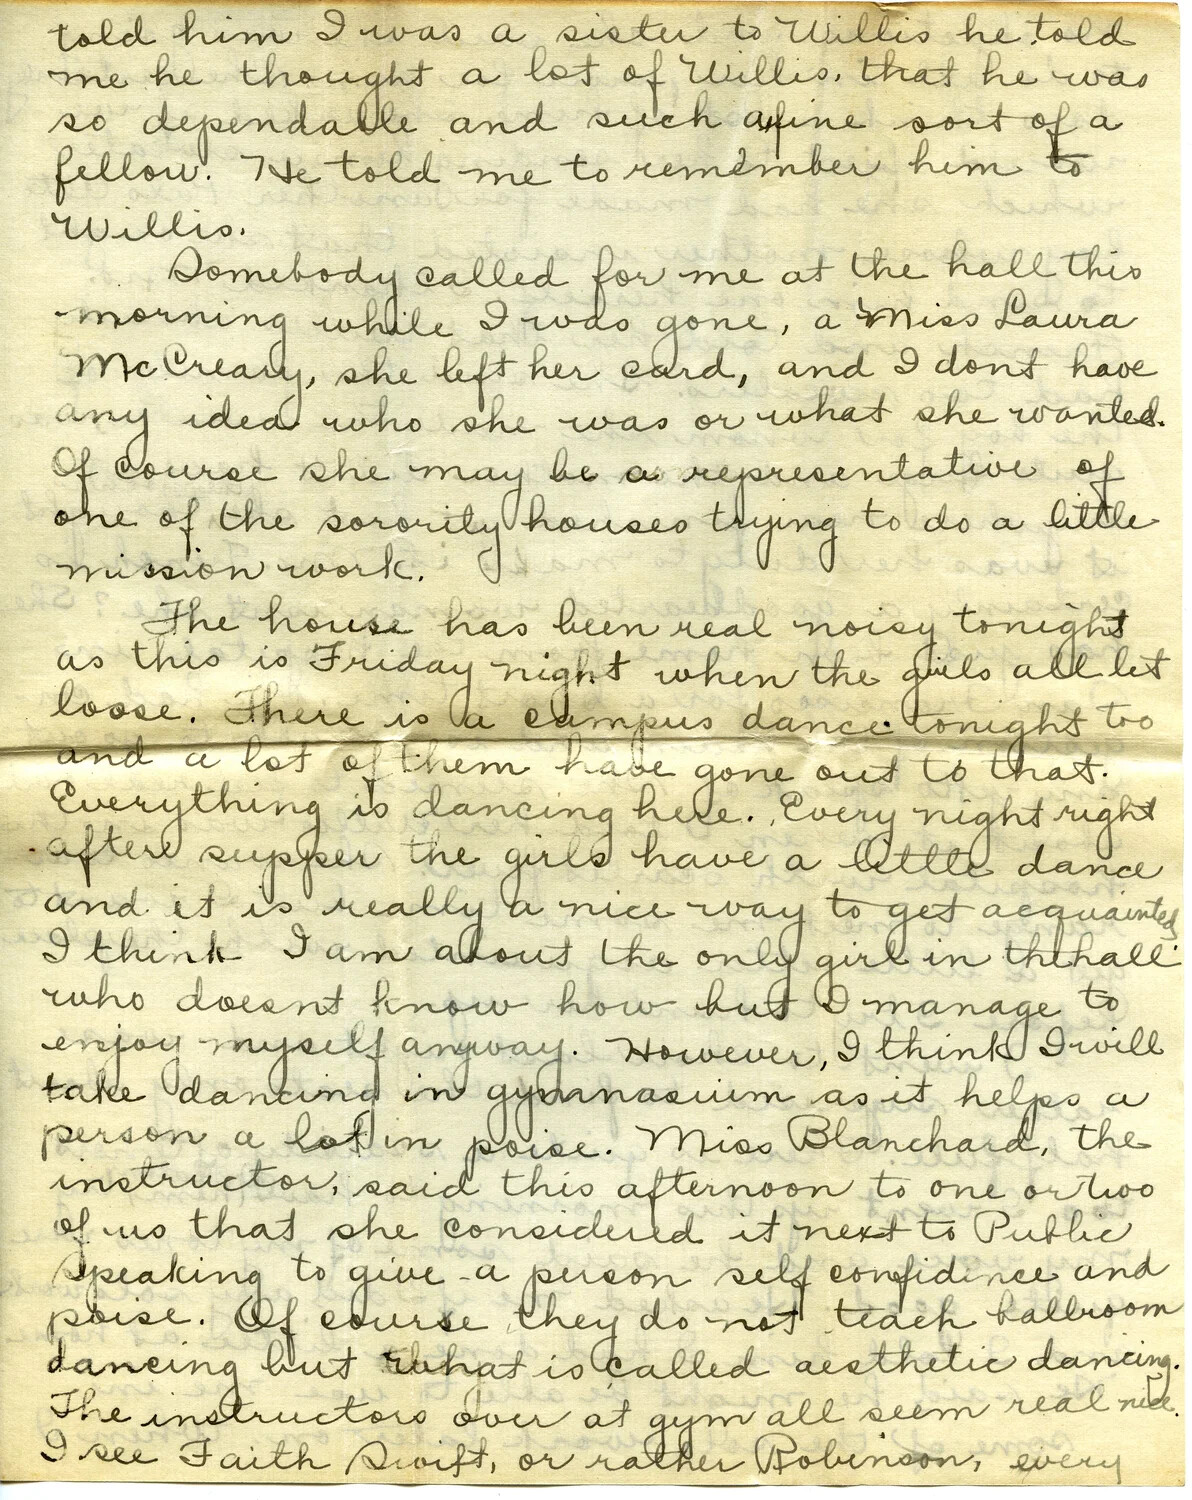 told him I was a sister to Willis he told
me he thought a lot of Willis, that he was
so dependable and such a fine sort of a
fellow. He told me to remember him to
Willis.
Somebody called for me at the hall this
morning while I was gone, a Miss Laura
McCreary, she left her card, and I dont have
any idea who she was or what she wanted.
Of course she may be a representative of
one of the sorority houses trying to do a little
mission work.
The house has been real noisy tonight
as this is Friday night when the girls all let
loose. There is a campus dance tonight too
and a lot of them have gone out to that.
Everything is dancing here. Every night right
after supper the girls have a little dance
and it is really a nice way to get acquainted
I think. I am about the only girl in the hall
who doesnt know how but I manage to
enjoy myself anyway. However, I think I will
take dancing in gymnasium as it helps a
person a lot in poise. Miss Blanchard, the
instructor, said this afternoon to one or two
of us that she considered it next to Public
Speaking to give a person self confidence and
poise. Of course they do not teach ballroom
dancing but what is called aesthetic dancing.
The instructors over at gym all seem real nice.
I see Faith Swift, or rather Robinson, every